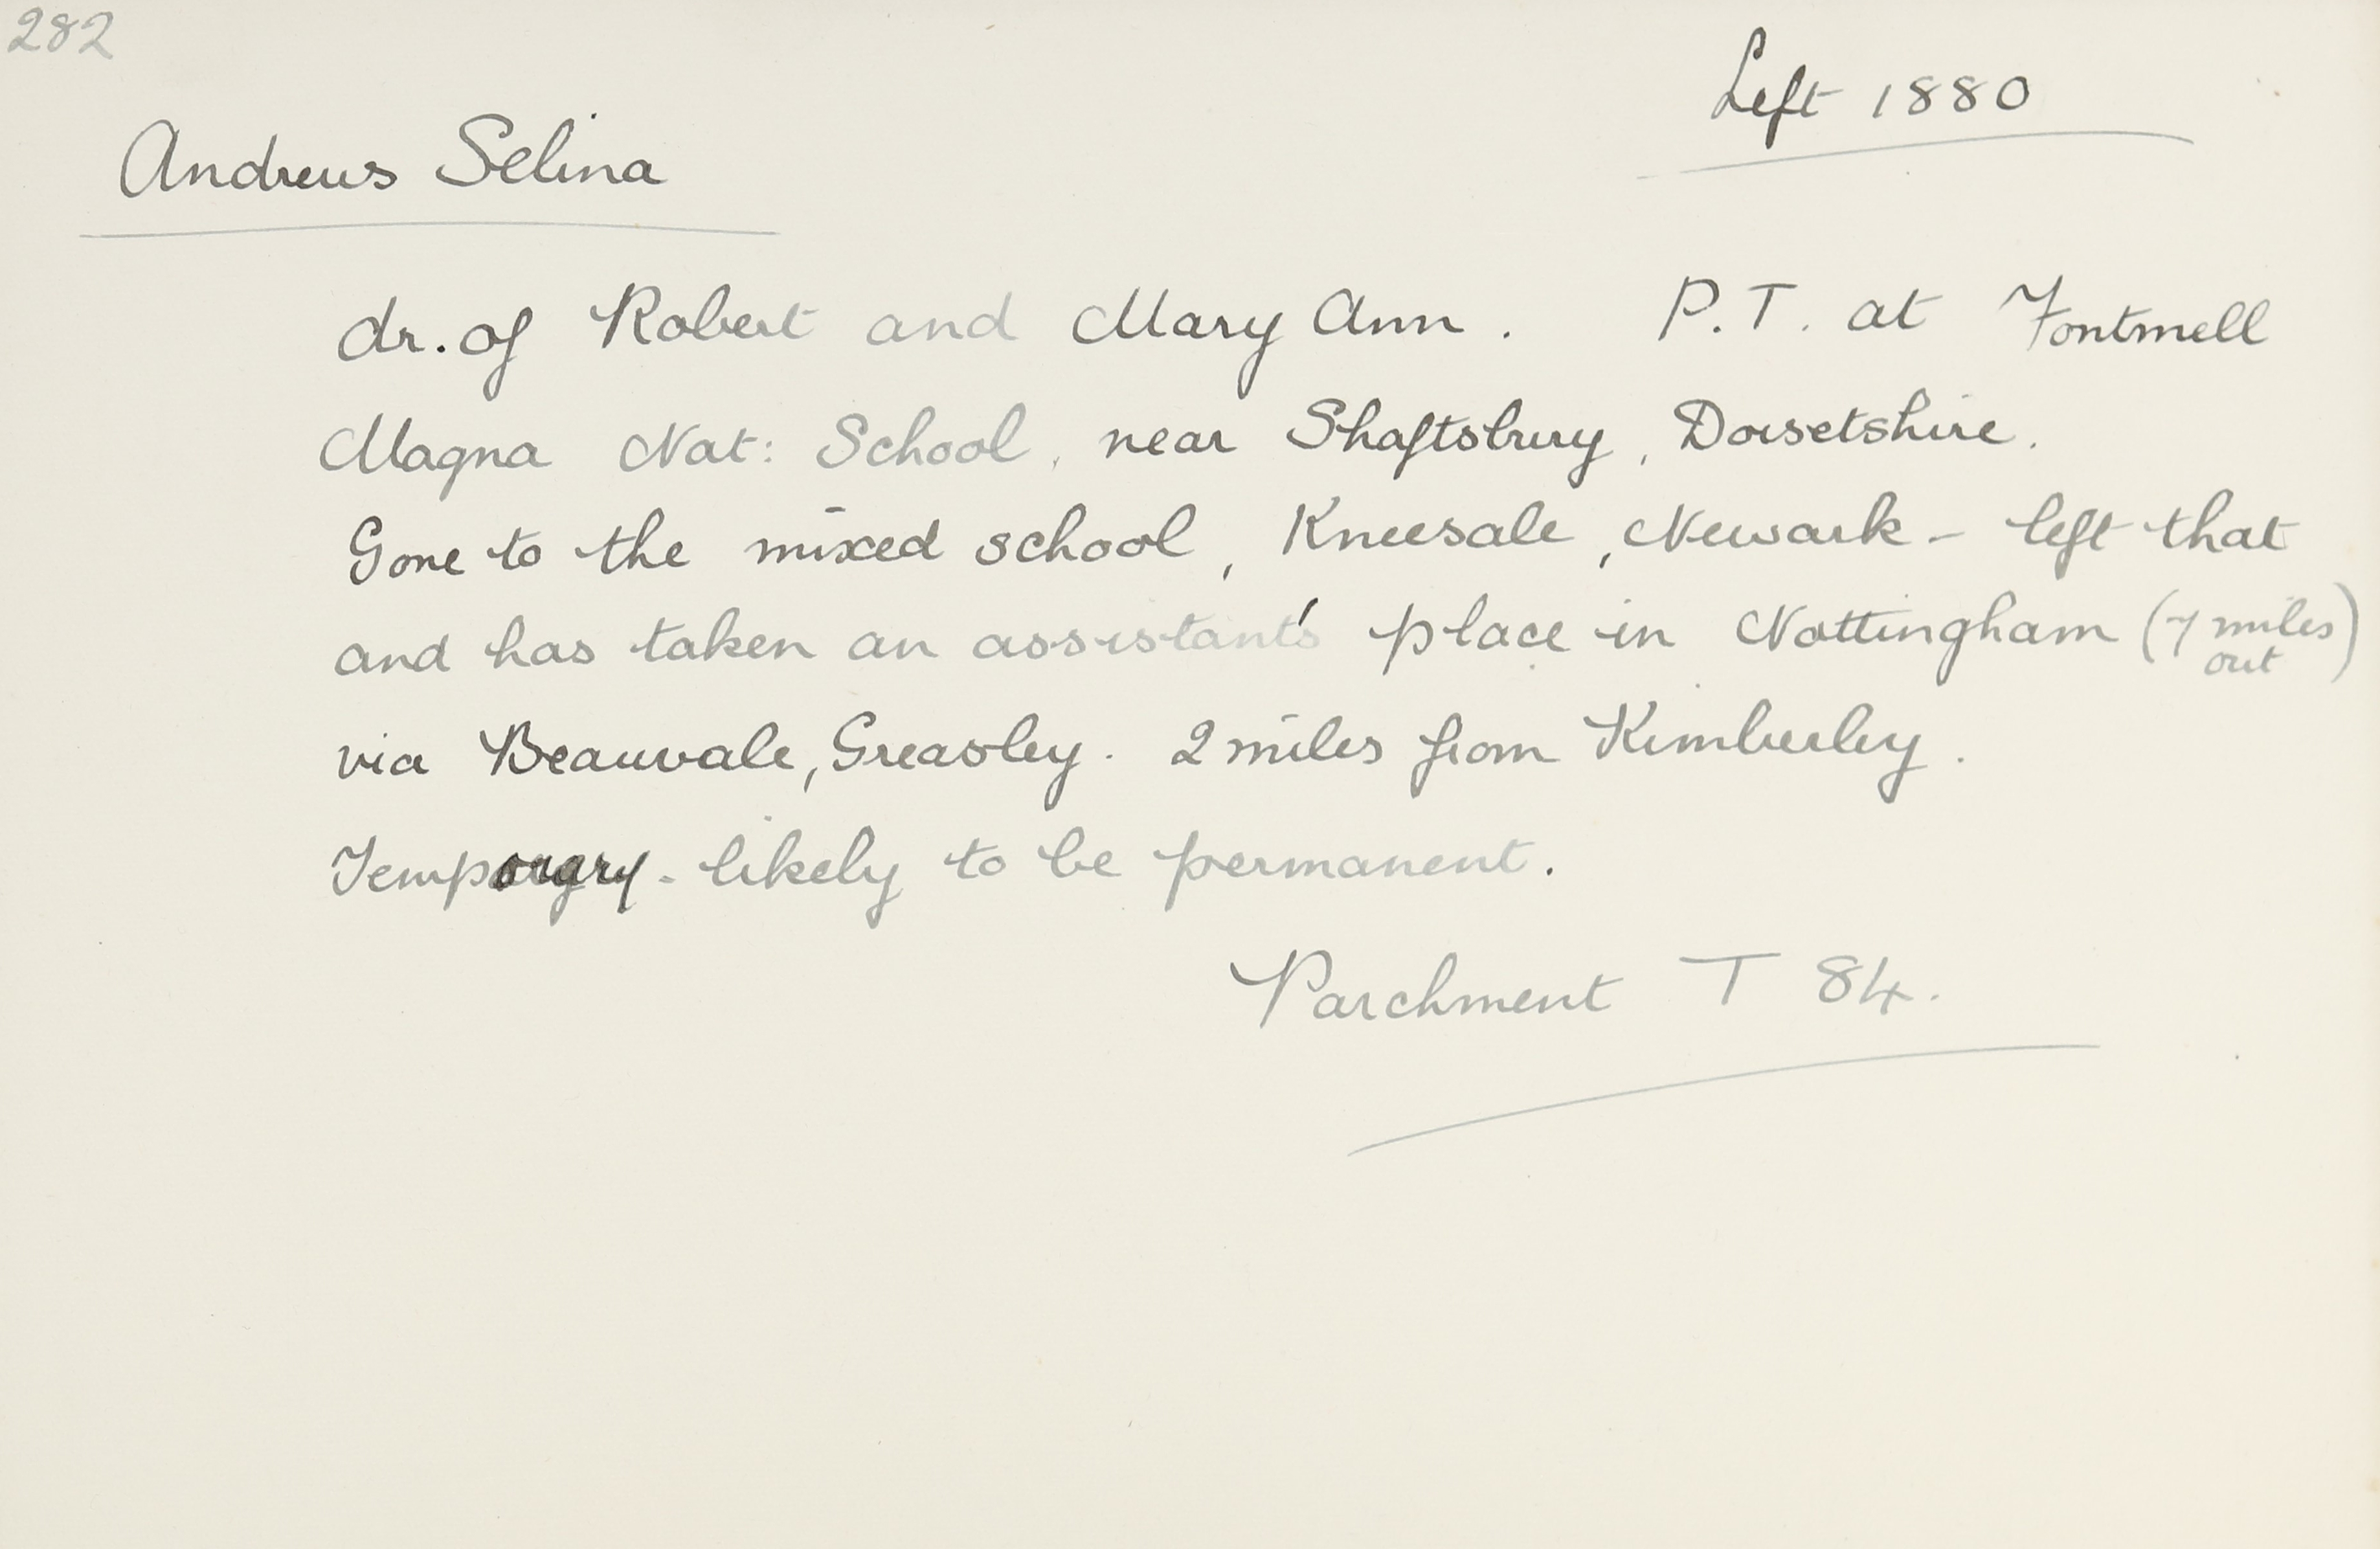 282
Left 1880
Andrews Selina
dr. of Robert and Mary Ann. P.T. at Fontmell
Magna Nat: School, near Shaftsbury, Dorsetshire.
Gone to the mixed school, Kneesale, Newark - left that
and has taken an assistant's place in Nottingham (7 miles
out)
via Beauvale, Greasley. 2 miles from Kimberley.
Temporary - likely to be permanent.
Parchment T 84.